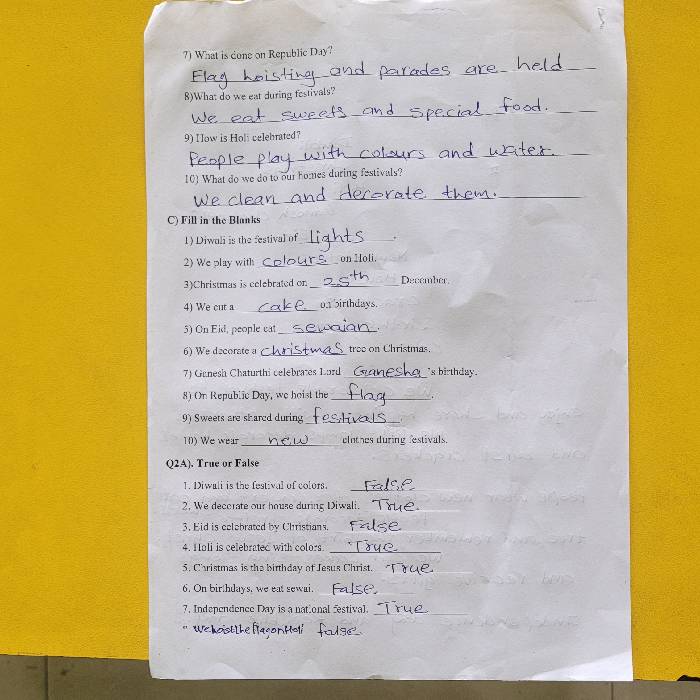 7) What is done on Republic Day?
Flag hoisting and parades are held
8)What do we eat during festivals?
We eat sweets and special food.
9) How is Holi celebrated?
People play with colours and water.
10) What do we do to our homes during festivals?
We clean and decorate them.
C) Fill in the Blanks
1) Diwali is the festival of lights.
2) We play with colours on Holi.
3)Christmas is celebrated on 25th December.
4) We cut a cake on birthdays.
5) On Eid, people eat sewaian.
6) We decorate a christmas tree on Christmas.
7) Ganesh Chaturthi celebrates Lord Ganesha's birthday.
8) On Republic Day, we hoist the flag.
9) Sweets are shared during festivals.
10) We wear new clothes during festivals.
Q2A). True or False
1. Diwali is the festival of colors. False
2. We decorate our house during Diwali. True.
3. Eid is celebrated by Christians. False
4. Holi is celebrated with colors. True
5. Christmas is the birthday of Jesus Christ. True
6. On birthdays, we eat sewai. False.
7. Independence Day is a national festival. True
We hoist the flag on Holi false